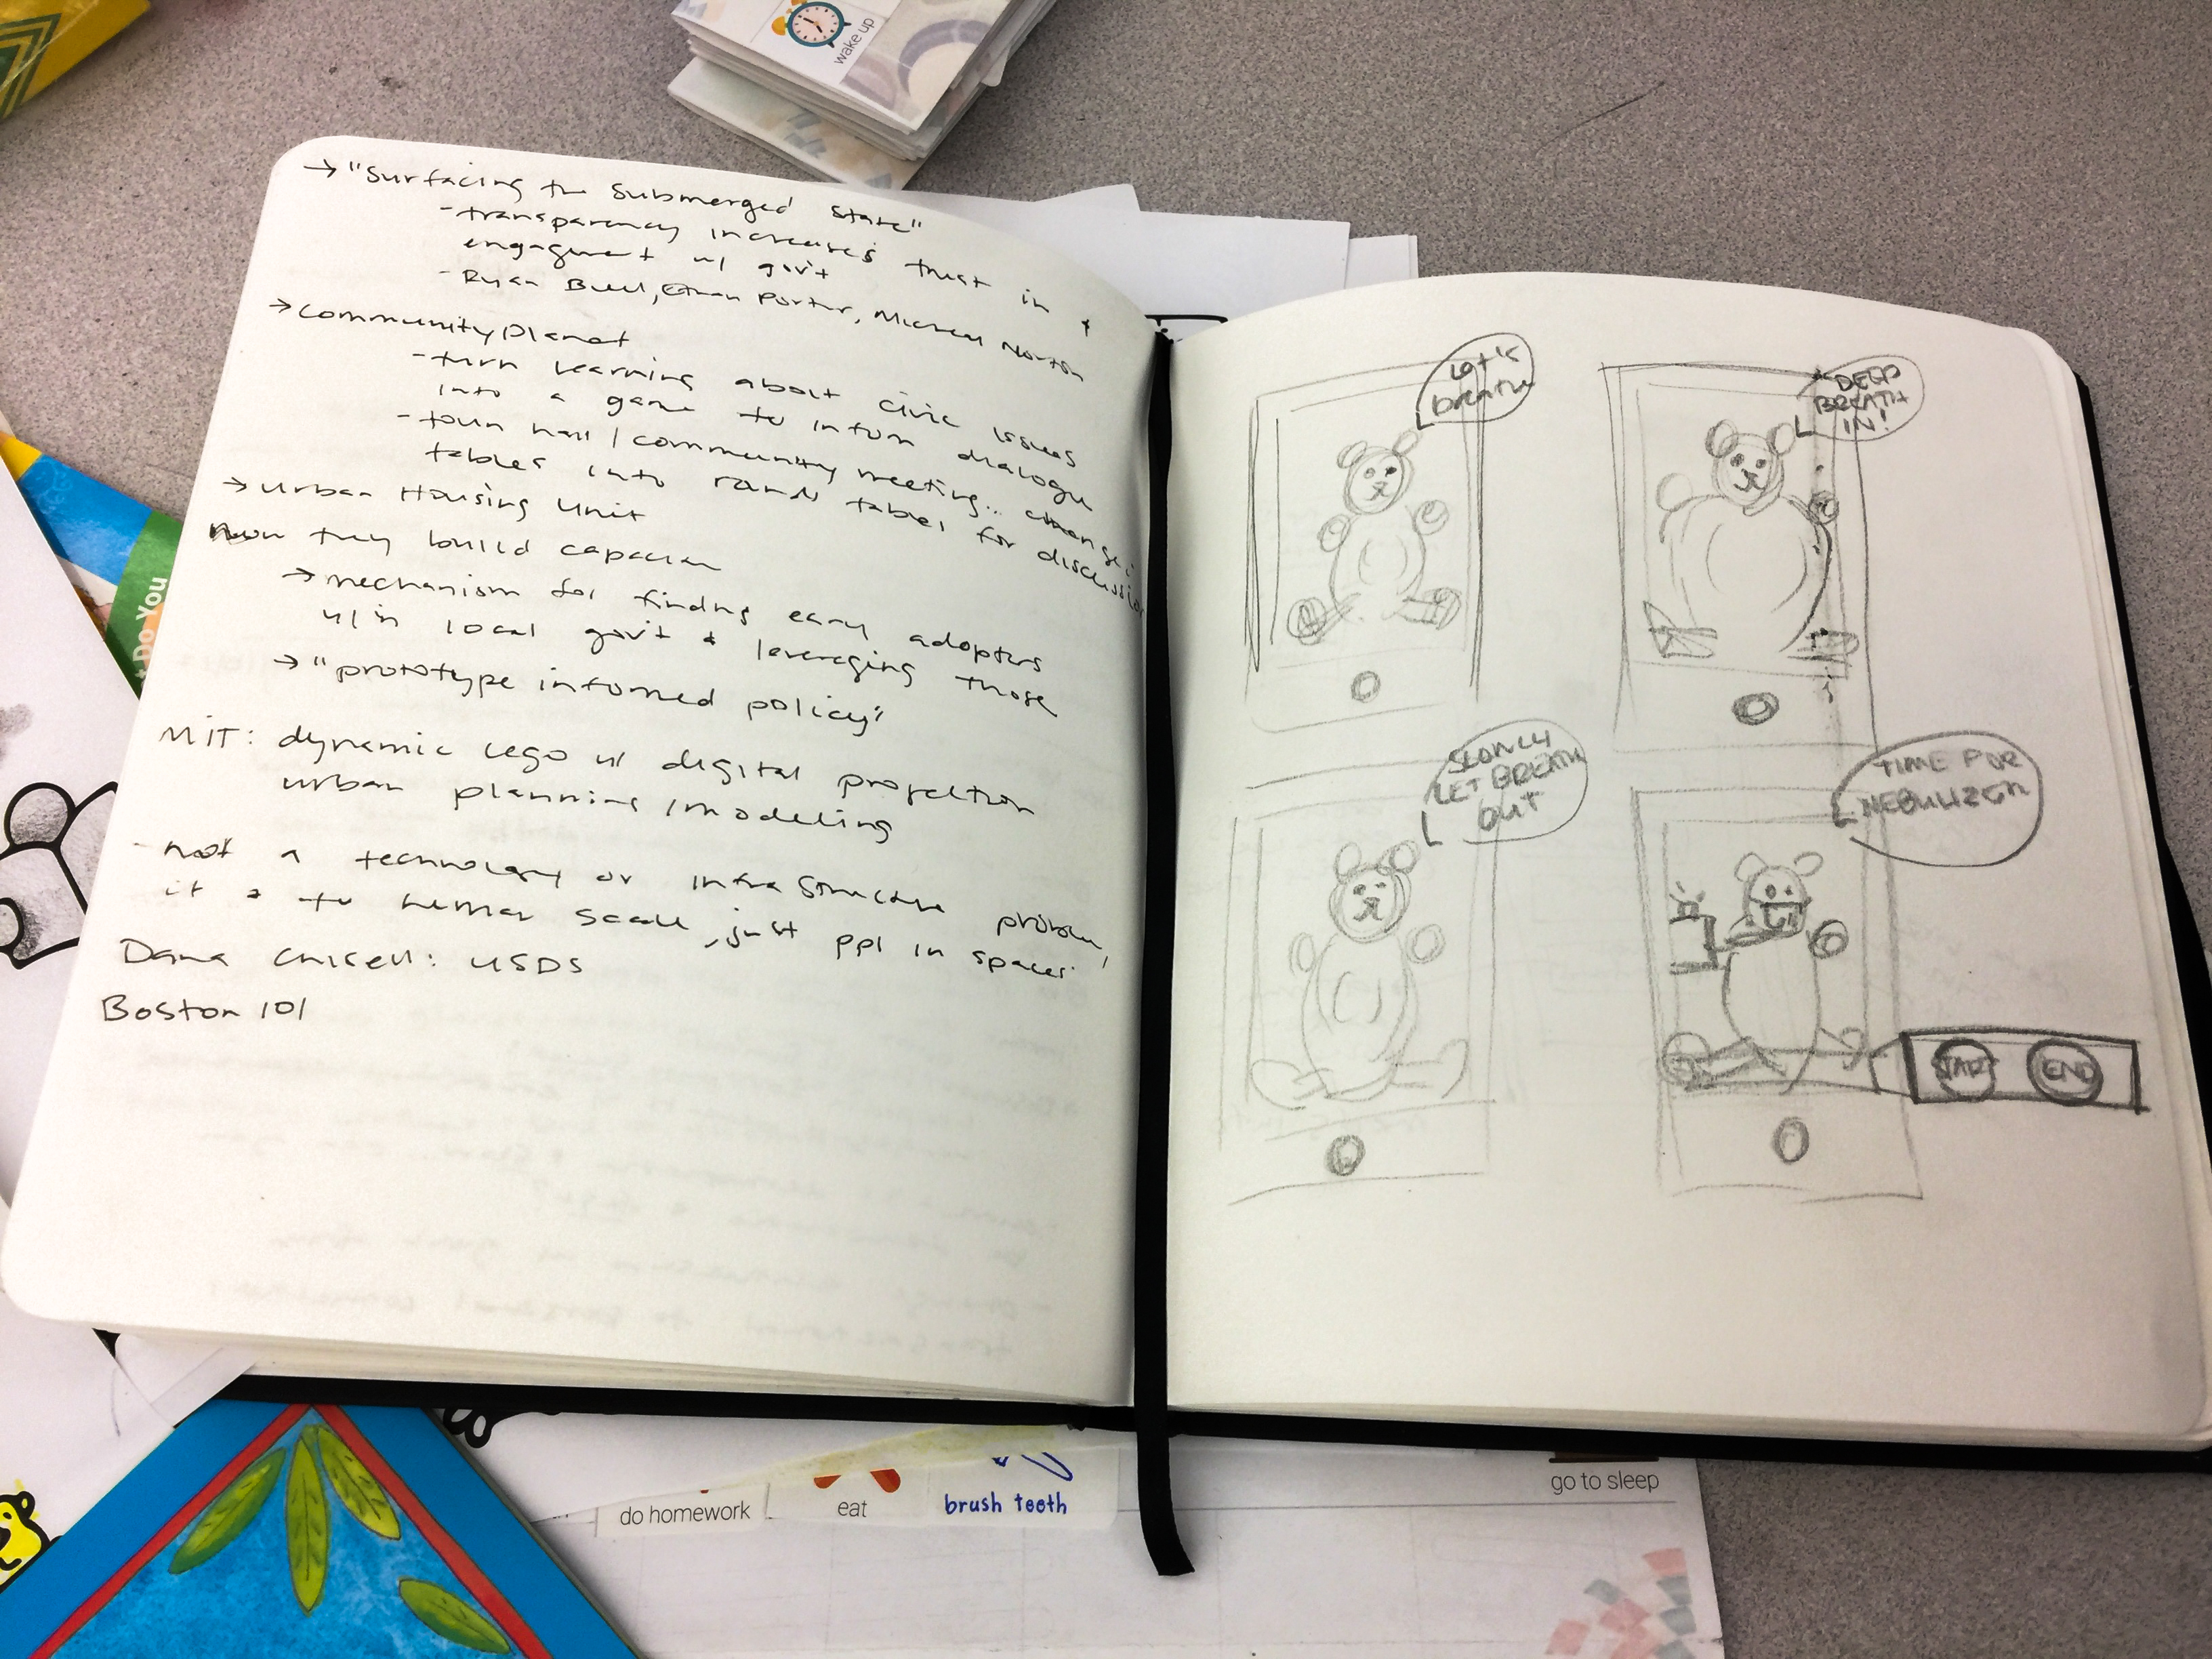 wake up
→ "Surfacing the Submerged State"
- transparency increases trust in &
engagement w/ gov't
- Ryan Buell, Ethan Porter, Michael Norton
→ CommunityPlanet
- turn learning about civic issues
into a game to inform dialogue
- town hall / community meeting... change
tables into round tables for discussion
→ Urban Housing Unit
How they build capacity
→ mechanism for finding early adopters
w/in local gov't & leveraging those
→ "prototype informed policy"
MIT: dynamic lego w/ digital projection
urban planning / modeling
- not a technology or infrastructure problem,
it to human scale, just ppl in spaces
Dana Chisnell: USDS
Boston 101
breath
DEEP
BREATH
IN!
SLOWLY
LET BREATH
OUT
TIME FOR
NEBULIZER
START END
Do You
do homework
eat
brush teeth
go to sleep